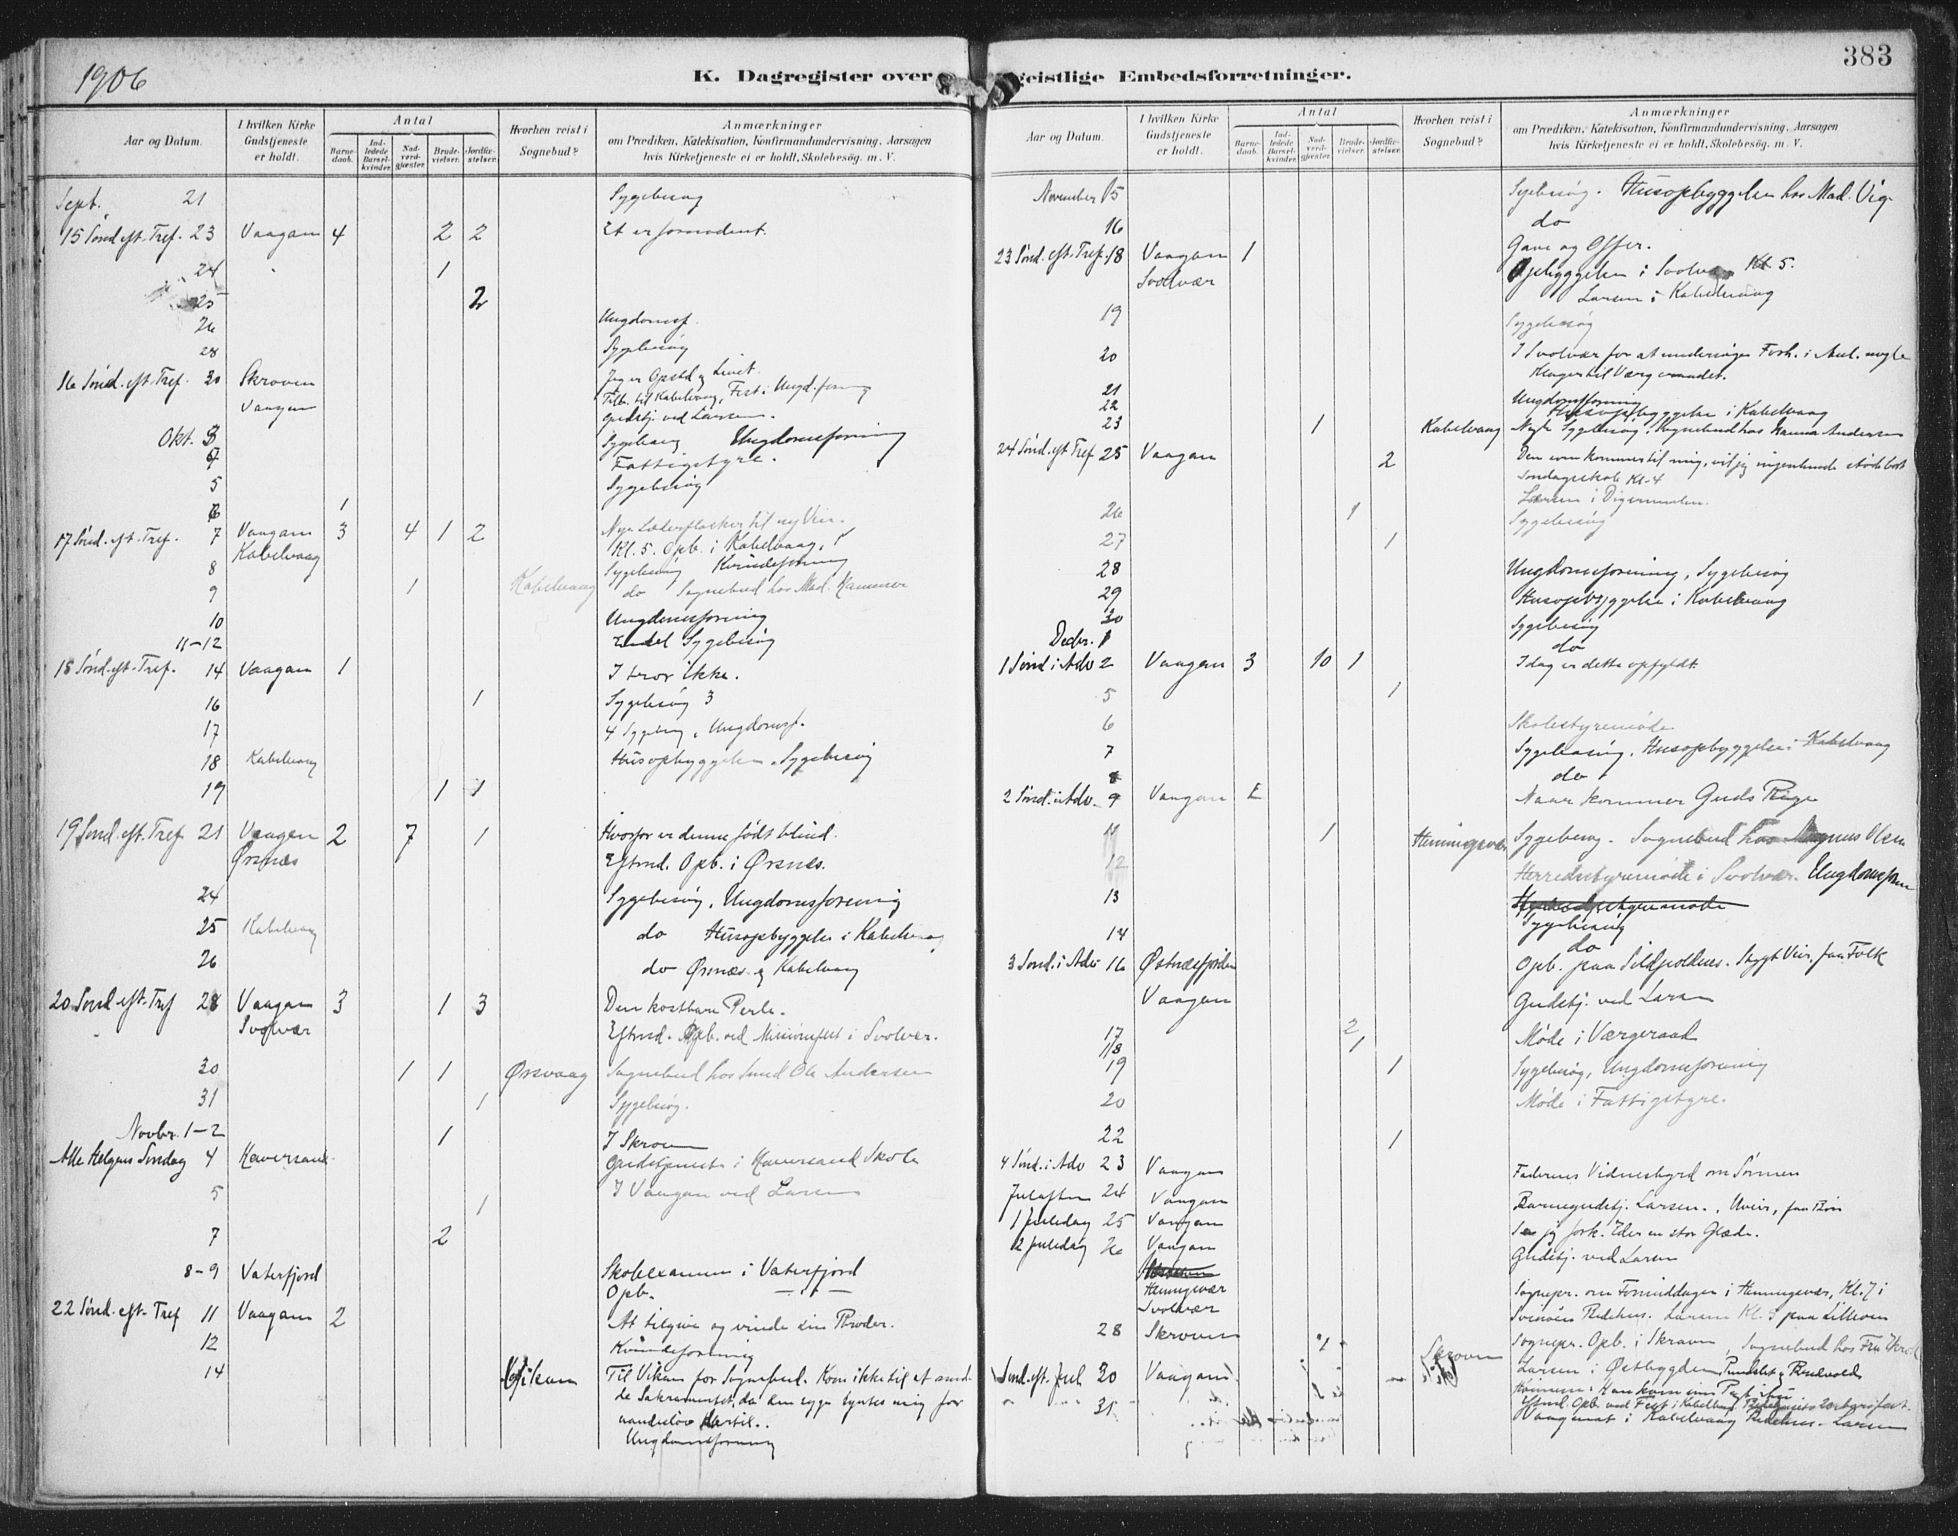 1906
K. Dagregister over geistlige Embedsforretninger.
383
Aar og Datum.
I hvilken Kirke Gudstjeneste er holdt.
Antal
Barnedaab.
Indledede Barselkvinder.
Nadverdgjæster.
Brudevielser.
Jordfæstelser.
Hvorhen reist i Sognebud?
Anmærkninger
om Prædiken, Katekisation, Konfirmandundervisning, Aarsagen
hvis Kirketjeneste ei er holdt, Skolebesøg. m. V.
Sept. 21 Sygebesøg
15 Sønd. eft. Tref. 23 Vaagan 4 2 2 Et er fornødent.
24 1
25 2
26 Ungdomsf.
28 Sygebesøg
16 Sønd. eft. Tref. 30 Skroven Jeg er Opstd. og Livet.
Vaagan Tilb. til Kabelvaag, Fest i Ungd.forening
Gudstj. ved Larsen.
Okt. 3 Sygebesøg Ungdomsforening
Fattigstyre.
5 Sygebesøg
6 1
17 Sønd. eft. Tref. 7 Vaagan 3 4 1 2 Nye Læderflasker til ny Vin.
Kabelvaag Kl. 5. Opb. i Kabelvaag.
8 Sygebesøg Kvindeforening
9 1 Kabelvaag do Sognebud hos Mad. Hammer
10 Ungdomsforening
11-12 Endel Sygebesøg
18 Sønd. eft. Tref. 14 Vaagan 1 I tror ikke.
16 1 Sygebesøg 3
17 4 Sygebesøg, Ungdomsf.
18 Kabelvaag Husopbyggelse, Sygebesøg
19 1 1
19 Sønd. eft. Tref 21 Vaagan 2 7 1 Hvorfor er denne født blind.
Ørsnes Eftmd. Opb. i Ørsnes.
24 Sygebesøg, Ungdomsforening
25 Kabelvaag do Husopbyggelse i Kabelvaag
26 do Ørsnæs og Kabelvaag
20 Sønd eft. Tref 28 Vaagan 3 1 3 Den kostbare Perle.
Svolvær Eftmd. Opb. ved Missionsfest i Svolvær.
30 1 1 Ørsvaag Sognebud hos Smed Ole Andersen
31 1 Sygebesøg.
Novbr. 1-2 1 I Skroven
Alle Helgens Søndag 4 Haversand Gudstjeneste i Haversand Skole
5 1 I Vaagan ved Larsen
7 2
8-9 Vaterfjord Skoleexamen i Vaterfjord
Opb.
22 Sønd. eft. Tref 11 Vaagan 2 At tilgive og vinde sin Broder.
12 Kvindeforening
14 Vikan Til Vikan for Sognebud. Kom ikke til at med-
de Sakramentet, da den syge syntes mig for
aandsløv dertil.
Ungdomsforening
Aar og Datum.
I hvilken Kirke Gudstjeneste er holdt.
Antal
Barnedaab.
Indledede Barselkvinder.
Nadverdgjæster.
Brudevielser.
Jordfæstelser.
Hvorhen reist i Sognebud?
Anmærkninger
om Prædiken, Katekisation, Konfirmandundervisning, Aarsagen
hvis Kirketjeneste ei er holdt, Skolebesøg. m. V.
November 15 Sygebesøg. Husopbyggelse hos Mad. Vig.
16 do
23 Sønd. eft. Tref. 18 Vaagan 1 Gave og Offer.
Svolvær Opbyggelse i Svolvær Kl. 5.
Larsen i Kabelvaag
19 Sygebesøg
20 I Svolvær for at undersøge Forh. i Anl. nogle
Klager til Værgeraadet.
21 Ungdomsforening
22 Husopbyggelse i Kabelvaag
23 1 Kabelvaag Nogle Sygebesøg, Sognebud hos Hanna Andersen
24 Sønd. eft Tref 25 Vaagan 2 Den som kommer til mig, vil jeg ingenlunde støde bort
Søndagsskole Kl. 4
Larsen i Digermulen.
26 1 Sygebesøg
27 1
28 Ungdomsforening, Sygebesøg
29 Husopbyggelse i Kabelvaag
30 Sygebesøg
Decbr. 1 do
1 Sønd i Adv 2 Vaagan 3 10 1 I dag er dette opfyldt.
5 1
6 Skolestyremøde
7 Sygebesøg, Husopbyggelse i Kabelvaag
8 do
2 Sønd. i Adv. 9 Vaagan Naar kommer Guds Rige
11 1 Henningsvær Sygebesøg. Sognebud hos Magnus Olsen
12 Herredsstyremøde i Svolvær. Ungdomsforen
13 Herredsstyremøde
Sygebesøg
14 do
3 Sønd. i Adv 16 Østnæsfjorden Opb. paa Sildpoldnes.
Vaagan Gudstj. ved Larsen
17 2 Møde i Værgeraad
18 1
19 1 Sygebesøg, Ungdomsforening
20 Møde i Fattigstyre.
22 1
4 Sønd. i Adv 23 Vaagan Faderens Vidnesbyrd om Sønnen
Juleaften 24 Vaagan Barnegudstj. Larsen.
1 Juledag 25 Vaagan Se jeg fork. Eder en stor Glæde.
2 Juledag 26 Vaagan Gudstj. ved Larsen
Henningsvær Sognepr. om Formiddagen i Henningsvær, Kl. 7 i
Svolvær Svinøens Bedehus. Larsen Kl. 5 paa
28 Skroven Skroven Sognepr. Opb. i Skroven, Sognebud hos Fru
Sønd. eft. Jul 30 Vaagan Larsen i Østbygden
31
Vaagenat i Kabelvaag Bedehus. Larsen